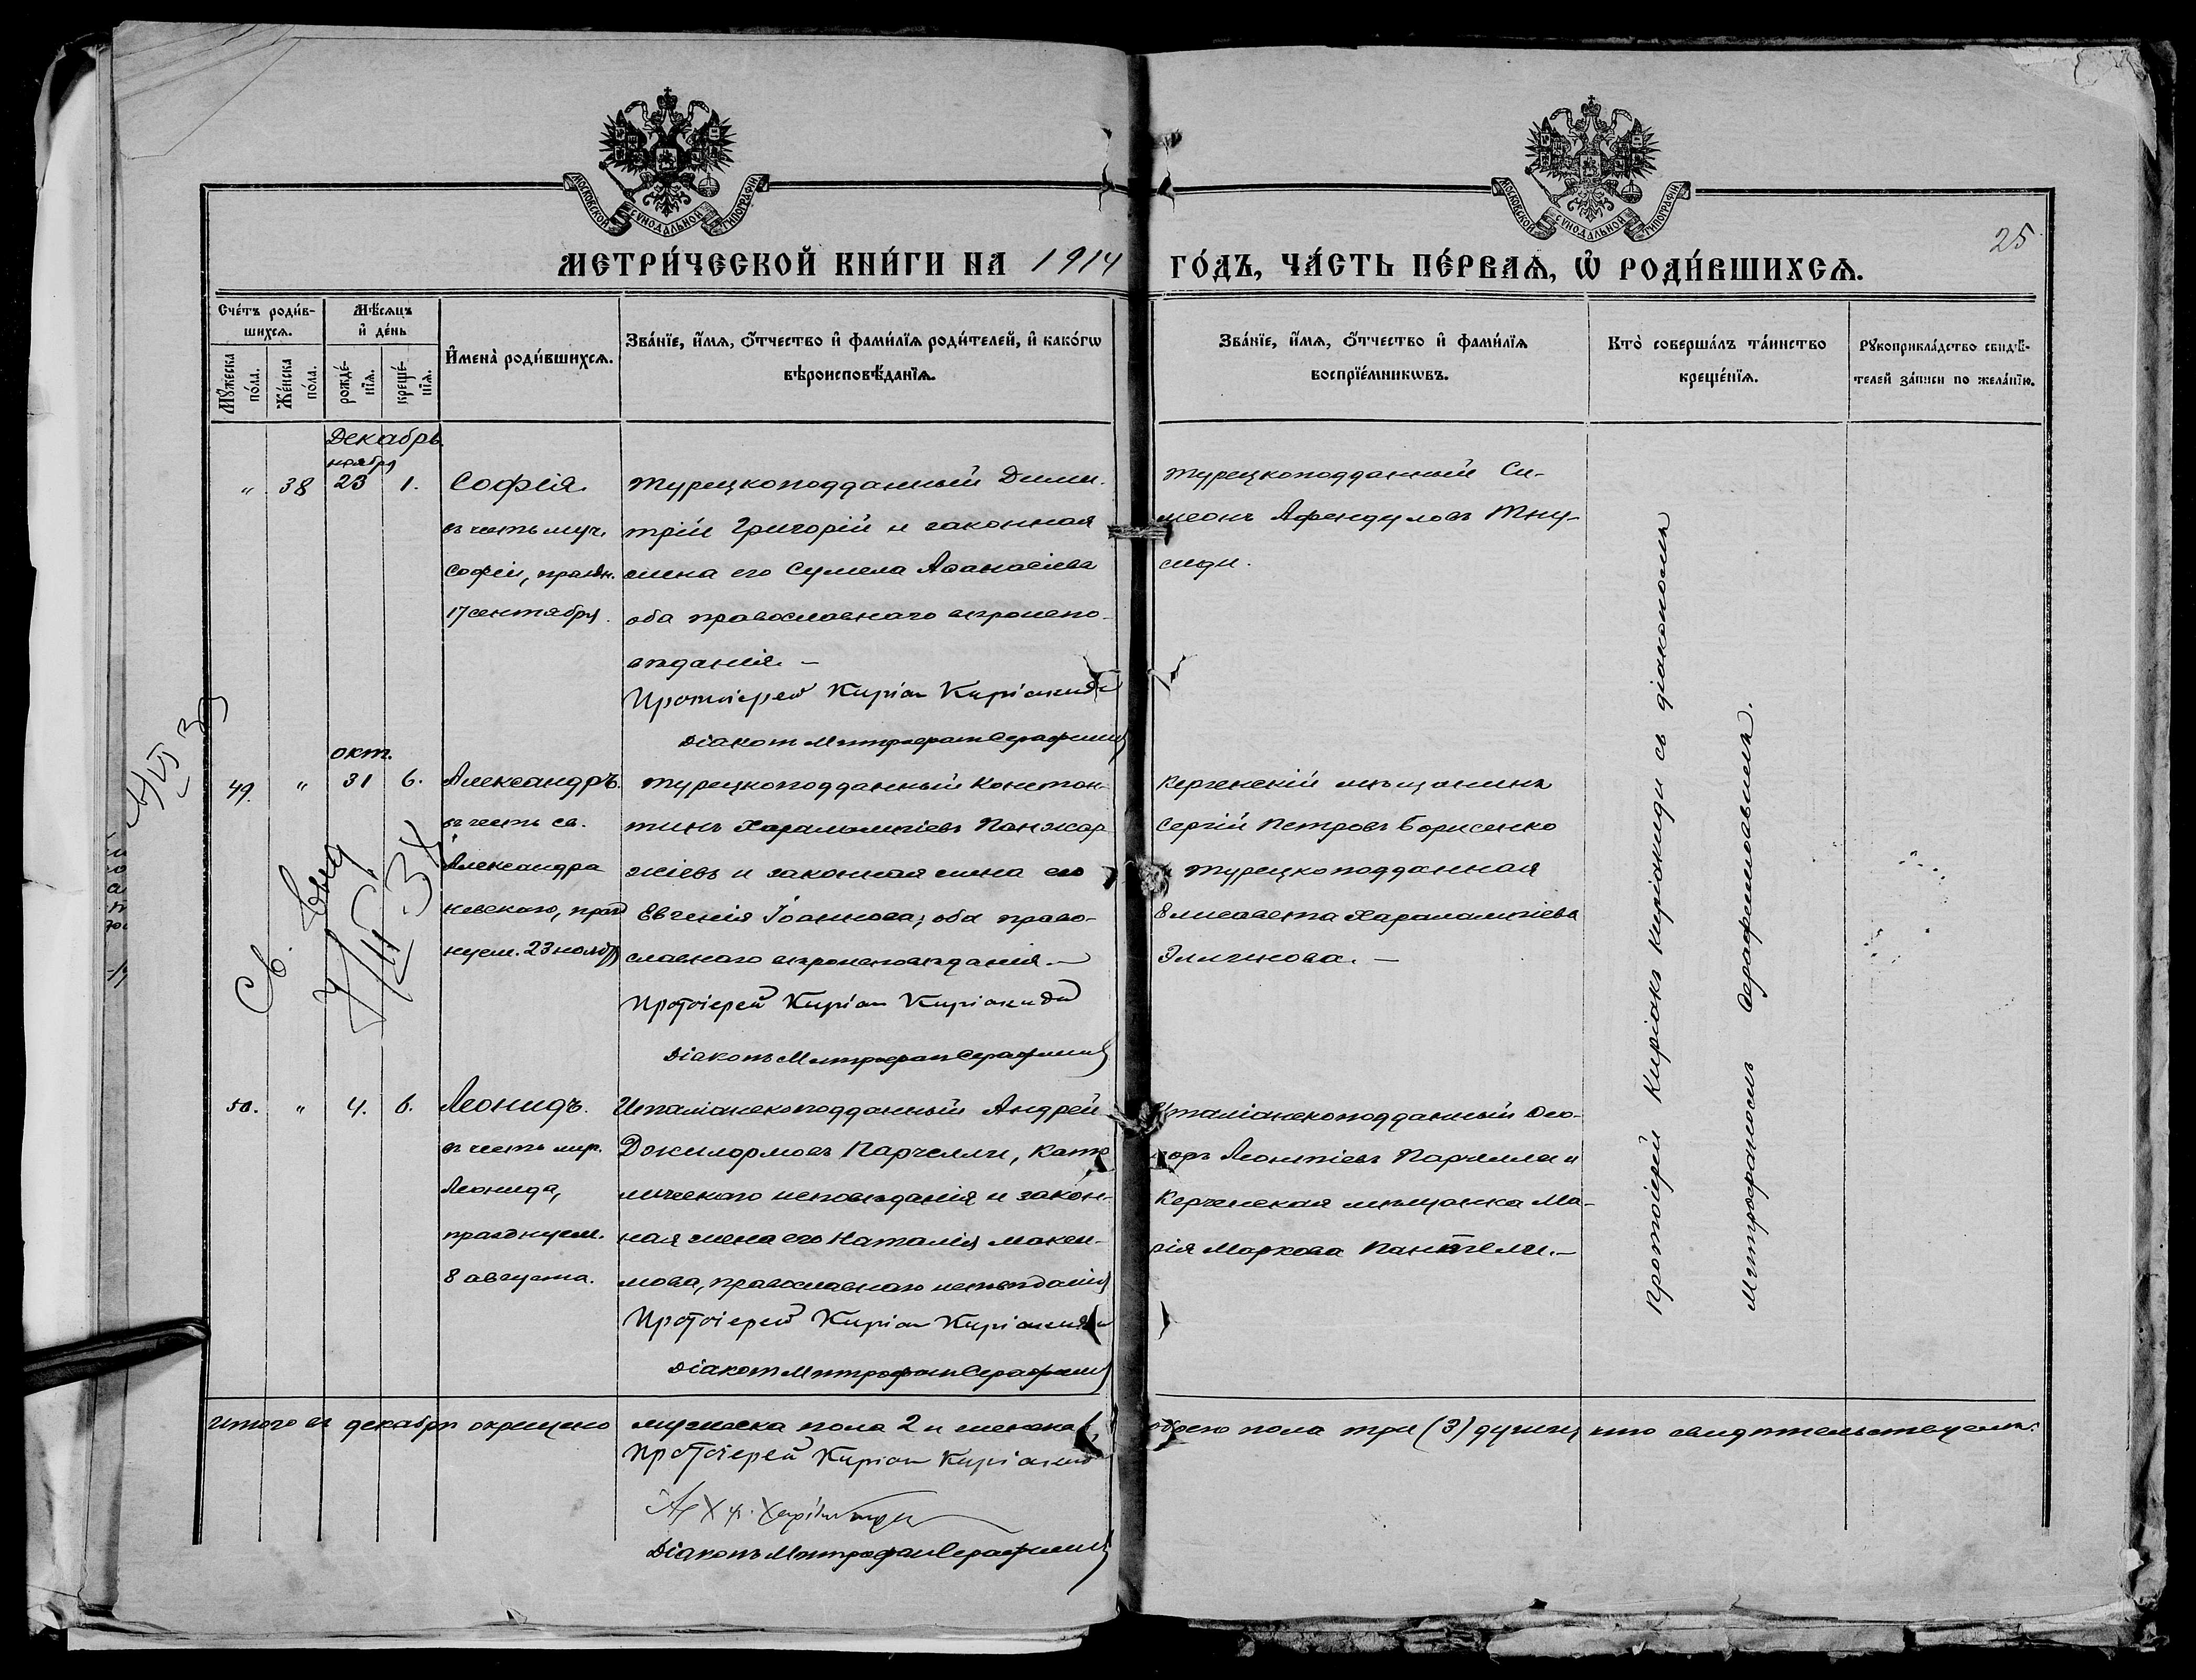 МОСКОВСКОЙ СѴНОДАЛЬНОЙ ТИПОГРАФІИ
МОСКОВСКОЙ СѴНОДАЛЬНОЙ ТИПОГРАФІИ
25
МЕТРИ́ЧЕСКОЙ КНИ́ГИ НА 1914 ГО́ДЪ, ЧА́СТЬ ПЕ́РВАѦ, Ѡ҆ РОДИ́ВШИХСѦ.
Сче́тъ роди́в-
шихсѧ.
Мꙋ́жеска по́ла.
Же́нска по́ла.
Мѣ́сѧцъ
и҆ де́нь
рожде́-
нїѧ.
креще́-
нїѧ.
И҆мена̀ роди́вшихсѧ.
Зва́нїе, и҆́мѧ, ѻ҆́тчество и҆ фами́лїѧ роди́телей, и҆ како́гѡ
вѣроисповѣ́данїѧ.
Зва́нїе, и҆́мѧ, ѻ҆́тчество и҆ фами́лїѧ
воспрїе́мникѡвъ.
Кто̀ соверша́лъ та́инство
креще́нїѧ.
Рꙋкоприкла́дство свидѣ́-
телей за́писи по жела́нїю.
Декабрь.
ноября
" 38 23 1.
Софія
въ честь муч.
Софіи, праздн.
17 сентября.
Турецкоподданный Дими-
трій Григорій и законная
жена его Сумела Афанасіева
оба православнаго вѣроиспо-
вѣданія. —
Протоіерей Киріак Киріакиди
Діаконъ Митрофанъ Серафимов
Турецкоподданный Си-
меонъ Афендуловъ
сиди.
окт.
49. " 31 6.
Александръ.
въ честь св.
Александра
Невскаго, празд
нуем. 23 ноября
Турецкоподданный Констан-
тинъ Харалампіевъ Панжар
жіевъ и законная жена его
Евгенія Іоаннова; оба право-
славнаго вѣроисповѣданія. —
Протоіерей Киріак Киріакиди
Діаконъ Митрофанъ Серафимов
Керченскій мѣщанинъ
Сергій Петровъ Борисенко
и Турецкоподданная
Елисавета Харалампіева
Эллинова. —
Св.
50. " 4. 6.
Леонидъ.
въ честь муч.
Леонида,
празднуем.
8 августа.
Италіанскоподданный Андрей
Парчелли, като
лическаго исповѣданія и закон-
ная жена его Наталія Макси-
мова, православнаго исповѣданія
Протоіерей Киріак Киріакиди
Діаконъ Митрофанъ Серафимов
Италіанскоподданный Ѳео-
доръ Леонтіевъ Парчелли и
Керченская мѣщанка Ма-
рія Маркова Пантелли. —
Протоіерей Киріакъ Киріакиди съ діакономъ
Митрофаномъ Серафимовымъ.
Итого въ декабрѣ окрещено мужеска пола 2 и женска 1, обоего пола три (3) души, что свидѣтельствуемъ:
Протоіерей Киріак Киріакиди
Діаконъ Митрофанъ Серафимов